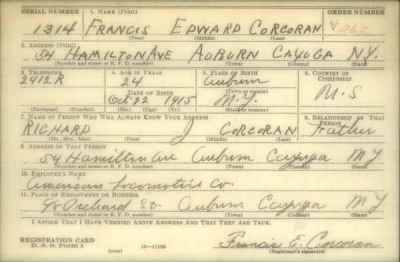 SERIAL NUMBER 1. NAME (Print) ORDER NUMBER
1314 FRANCIS EDWARD CORCORAN V1262
(First) (Middle) (Last)
2. ADDRESS (Print)
54 HAMILTON AVE AUBURN CAYUGA N.Y.
(Number and street or R. F. D. number) (Town) (County) (State)
3. TELEPHONE 4. AGE IN YEARS 5. PLACE OF BIRTH 6. COUNTRY OF CITIZENSHIP
2412 R 24 Auburn
DATE OF BIRTH (Town or county)
Oct 22 1915 N.Y. U.S
(Exchange) (Number) (Mo.) (Day) (Yr.) (State or country)
7. NAME OF PERSON WHO WILL ALWAYS KNOW YOUR ADDRESS 8. RELATIONSHIP OF THAT PERSON
RICHARD J CORCORAN Father
(Mr., Mrs., Miss) (First) (Middle) (Last)
9. ADDRESS OF THAT PERSON
54 Hamilton Ave Auburn Cayuga N.Y
(Number and street or R. F. D. number) (Town) (County) (State)
10. EMPLOYER'S NAME
American Locomotive Co
11. PLACE OF EMPLOYMENT OR BUSINESS
Orchard St. Auburn Cayuga N.Y
(Number and street or R. F. D. number) (Town) (County) (State)
I AFFIRM THAT I HAVE VERIFIED ABOVE ANSWERS AND THAT THEY ARE TRUE.
REGISTRATION CARD
D. S. S. Form 1 (over) Francis E. Corcoran
(Registrant's signature)